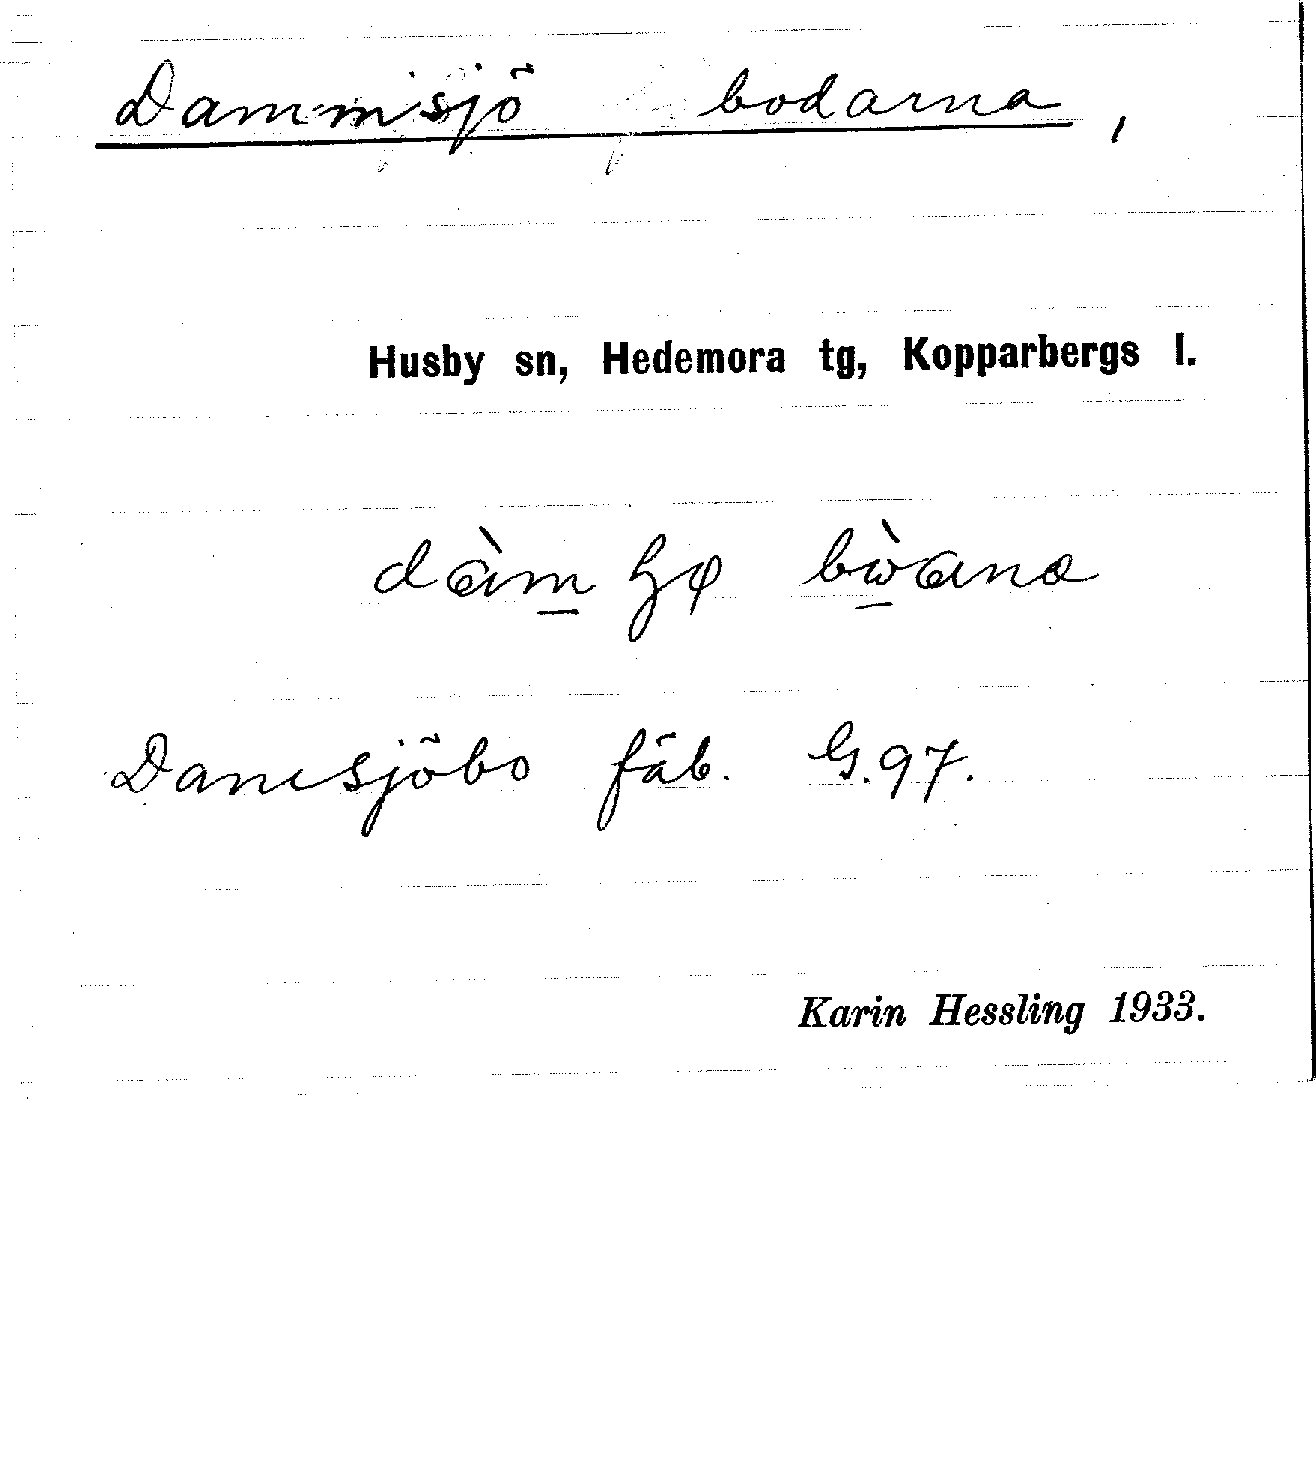 Dammsjö bodarna,
Husby sn, Hedemora tg, Kopparbergs l.
Damsjöbo fäb. G.97.
Karin Hessling 1933.